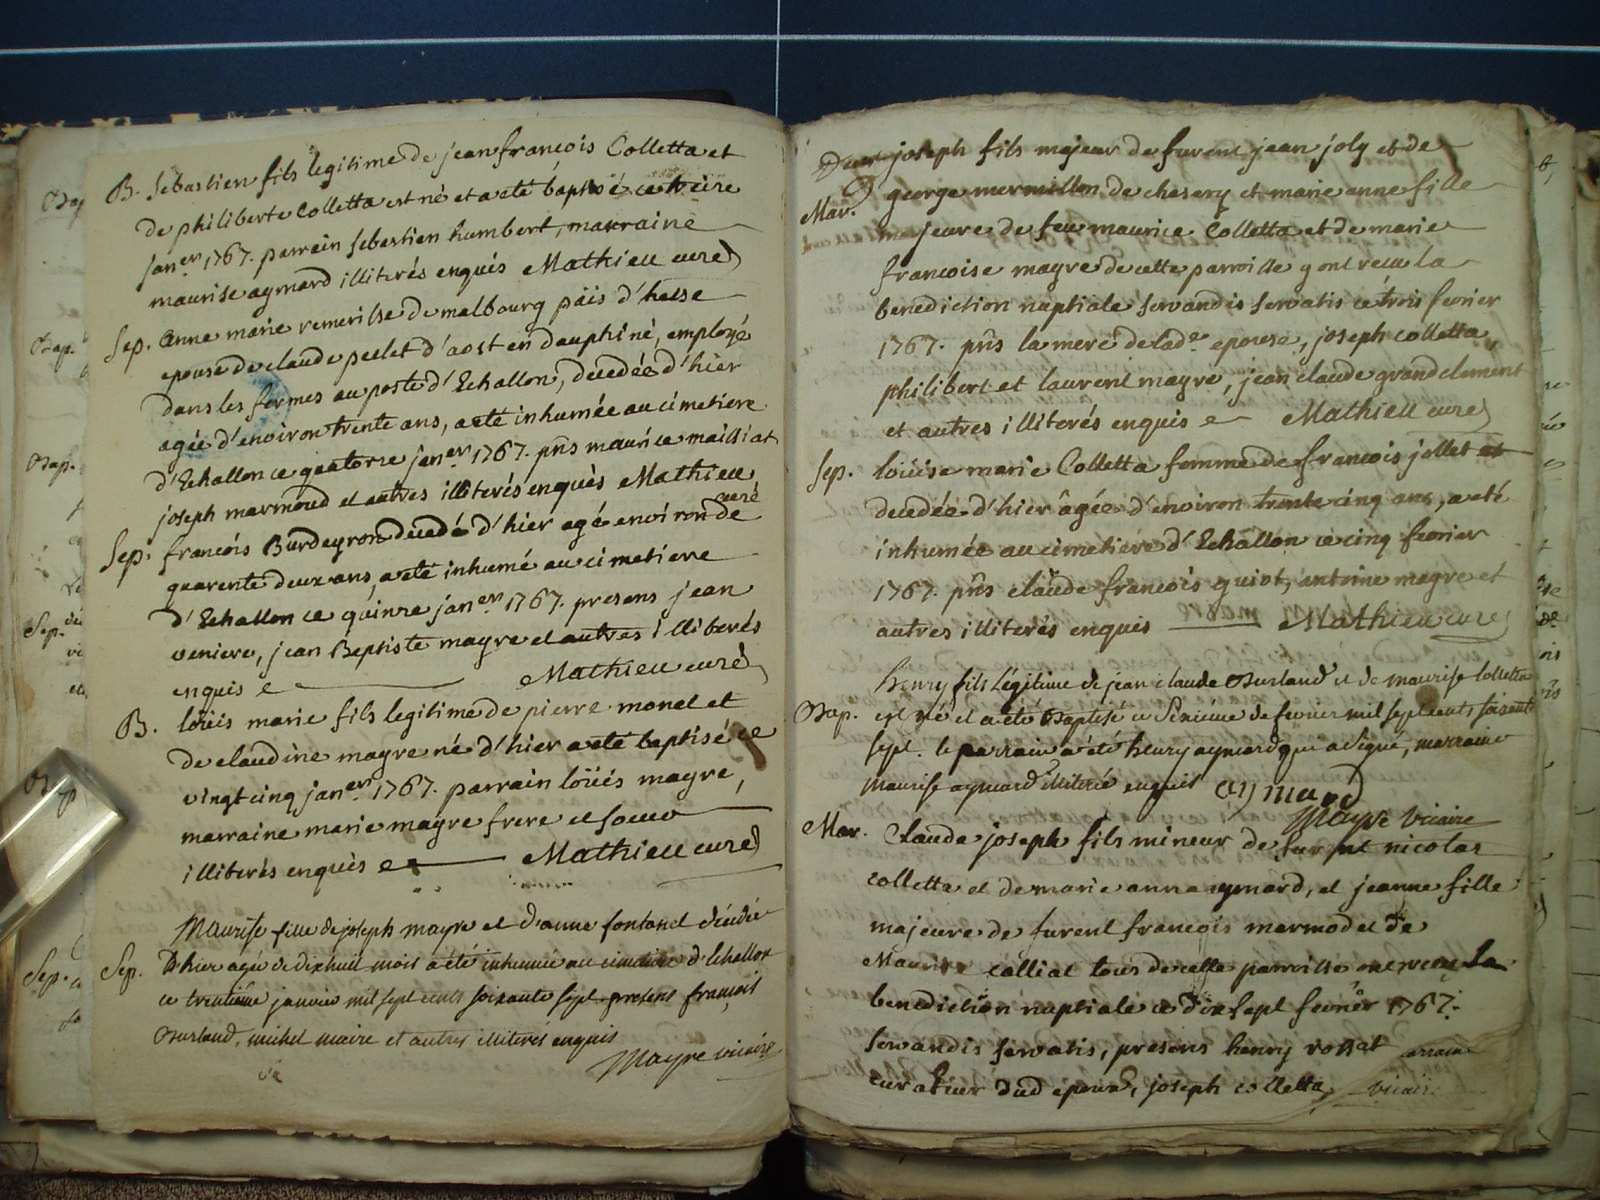 B. Sebastien fils legitime de jean francois Colletta et
de philiberte Colletta est né et a eté baptisé ce treize
janer 1767. parrain sebastien humbert, marraine
maurise aymard illiterés enquis Mathieu curé
Sep. Anne marie remerilse de malbourg païs d'hesse
epouse de claude peelet d'aost en dauphiné, employé
dans les fermes au poste d'Echallon, decedée d'hier
agée d'environ trente ans, a eté inhumée au cimetiere
d'Echallon ce quatorze janer 1767. pñs maurice mailliat
joseph marmoud et autres illiterés enquis Mathieu
curé
Sep. francois Burdeyron decedé d'hier agé environ de
quarente deux ans, a eté inhumé au cimetiere
d'Echallon ce quinze janer 1767. presens jean
veniere, jean Beptiste mayre et autres illiterés
enquis e Mathieu curé
B. loüis marie fils legitime de pierre monet et
de claudine mayre né d'hier a eté baptisé ce
vingt cinq janer 1767. parrain loüis mayre,
marraine marie mayre frere et soeur
illiterés enquis e Mathieu curé
Maurise fille de joseph mayre et d'anne fontanel décédée
Sep. d'hier agée de dixhuit mois a été inhumée au cimetière d'Echallon
ce trentième janvier mil sept cents soixante sept. presens françois
Burland, michel maire et autres illiterés enquis
Mayre vicaire
joseph fils majeur de furent jean joly et de
george mermillon de chesery et marie anne fille
Mar. majeure de feu maurice Colletta et de marie
francoise mayre de cette parroisse y ont recu la
benediction nuptiale servandis servatis ce trois fevrier
1767. pñs la mere de lade epouse, joseph colletta,
philibert et laurent mayre, jean claude grandclement
et autres illiterés enquis e Mathieu curé
Sep. loüise marie Colletta femme de francois jallet
decedée d'hier âgée d'environ trente cinq ans, a eté
inhumée au cimetiere d'Echallon ce cinq fevrier
1767. pñs claude francois guiot, antoine mayre et
autres illiterés enquis Mathieu curé
henry fils légitime de jean claude Burland et de maurise Colletta
Bap. est né et a eté Baptisé ce sixième de fevrier mil sept cents soixante
sept. le parrain a été henry aymard qui a signé, marraine
maurise aymard illiterée enquise aymard
Mayre vicaire
Mar. Claude joseph fils mineur de nicolas
colletta et de marie anne aymard, et jeanne fille
majeure de furent francois marmod et de
Maurise calliat tous de cette parroisse ont recu la
benediction nuptiale ce dix sept fevrier 1767.
servandis servatis, presens henry rossat
curateur dud epoux, joseph colletta,